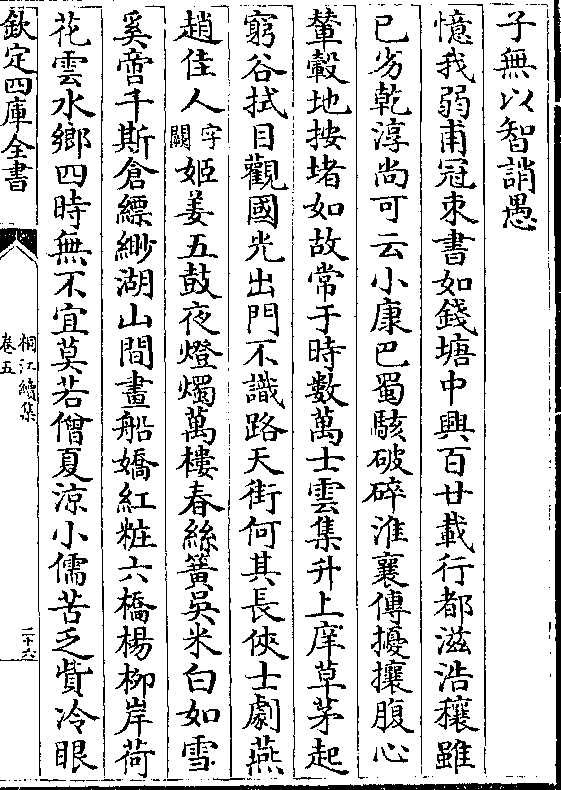 子無以智誚愚
憶我弱甫冠束書如錢塘中興百廿載行都滋浩穰雖
已劣乾淳尚可云小康巴蜀駭破碎淮襄傳擾攘腹心
輦轂地按堵如故常于時數萬士雲集升上庠草茅起
窮谷拭目觀國光出門不識路天街何其長俠士劇燕
趙佳人字闕姬姜五鼓夜燈燭萬樓春絲簧吳米白如雪
奚啻千斯倉縹緲湖山間畫船嬌紅粧六橋楊柳岸荷
花雲水鄉四時無不宜莫若僧夏涼小儒苦乏貲冷眼
欽定四庫全書
桐江續集
卷五
二十六